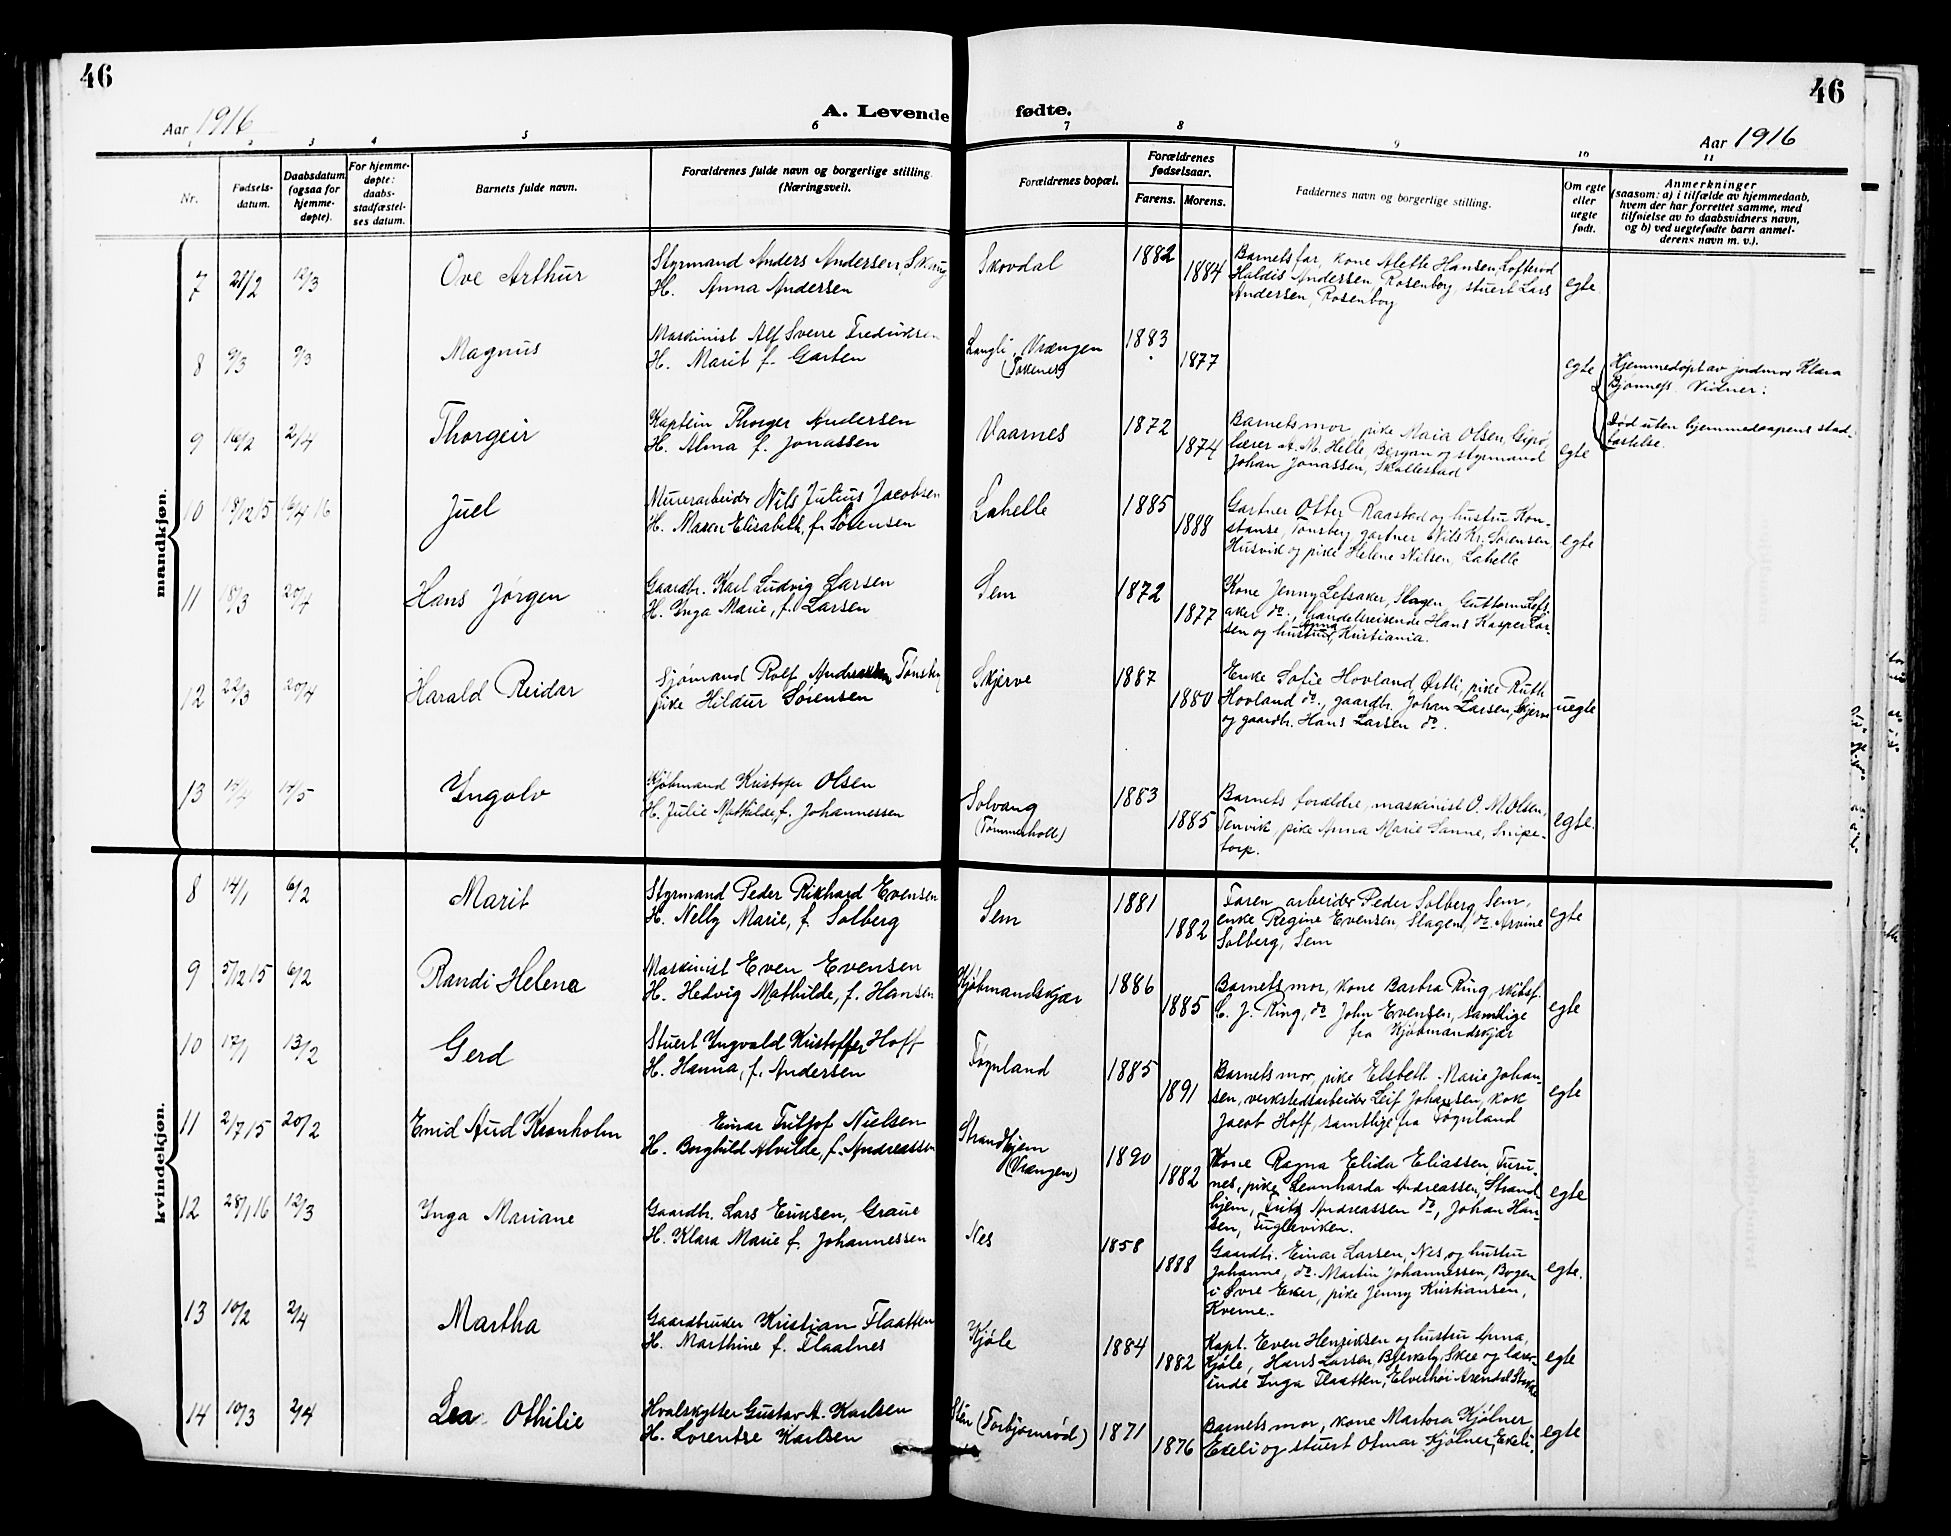 46
46
Aar 1916
A. Levende fødte.
Aar 1916
1 2 3 4 5 6 7 8 9 10 11
Nr.
Fødsels-
datum.
Daabsdatum
(ogsaa for
hjemme-
døpte).
For hjemme-
døpte:
daabs-
stadfæstel-
ses datum.
Barnets fulde navn.
Forældrenes fulde navn og borgerlige stilling.
(Næringsvei).
Forældrenes bopæl.
Forældrenes
fødselsaar.
Farens. Morens.
Faddernes navn og borgerlige stilling.
Om egte
eller
uegte
født.
Anmerkninger
(saasom: a) i tilfælde av hjemmedaab,
hvem der har forrettet samme, med
tilføielse av to daabsvidners navn,
og b) ved uegtefødte barn anmel-
derens navn m. v.).
mandkjøn.
7 21/2 12/3 Ove Arthur
Styrmand Anders Andersen, Skaug
H. Anna Andersen
Skovdal 1882 1884
Barnets far, kone Alette Hansen, Lofterød
Haldis Andersen, Rosenborg, stuert Lars
Andersen, Rosenborg
egte
8 9/3 9/3 Magnus
Maskinist Alf Sverre Fredriksen
H. Marit f. Garten
Langli, Vrængen
1883 1877
egte
Hjemmedøpt av jordmor Klara
Bjønness. Vidner:
Død uten hjemmedaapens stad-
fæstelse.
9 16/2 2/4 Thorgeir
Kaptein Thorger Andersen
H. Alma f. Jonassen
Vaarnes 1872 1874
Barnets mor, pike Maia Olsen, Gipø,
lærer A. M. Helle, Bergan og styrmand
Johan Jonassen, Skallestad
egte
10 18/12 15 16/4 16 Juel
Murerarbeider Nils Julius Jacobsen
H. Maren Elisabeth, f. Sørensen
Labelle 1885 1888
Gartner Otter Raastad og hustru Kon-
stanse, Tønsberg, gartner Nils Kr. Sørensen,
Husvik og pike Helene Nilsen, Labelle
egte
11 18/3 20/4 Hans Jørgen
Gaardbr. Karl Ludvig Larsen
H. Inga Marie, f. Larsen
Sem 1872 1877
Kone Jenny Lefsaker, Slagen, Guttorm Lefs-
aker do., handelsreisende Hans Kasper Lar-
sen og hustru Anna, Kristiania.
12 22/3 20/4 Harald Reidar
Sjømand Rolf Andreassen, Tønsberg
pike Hildur Sørensen
Skjerve 1887 1880
Enke Sofie Hovland, Østli, pike Ruth
Hovland do., gaardbr. Johan Larsen, Skjerve
og gaardbr. Hans Larsen do.
uegte
13 14/4 14/5 Ingolv
Kjøbmand Kristofer Olsen
H. Julie Mathilde, f. Johannessen
Solvang
(Tømmerholt)
1883 1885
Barnets forældre, maskinist O. M. Olsen,
Tenvik, pike Anna Marie Sanne, Snipe-
torp.
egte.
kvindekjøn.
8 14/1 6/2 Marit
Styrmand Peder Rikhard Evensen
H. Nelly Marie, f. Solberg
Sem 1881 1882
Faren, arbeider Peder Solberg, Sem,
enke Regine Evensen, Slagen, do. Arvine
Solberg, Sem
egte
9 5/12 15 6/2 Randi Helene
Maskinist Even Evensen
H. Hedvig Mathilde, f. Hansen
Kjøbmandskjær 1886 1885
Barnets mor, kone Barbra Ring, skibsf.
C. J. Ring, do John Evensen, samtlige
fra Kjøbmandskjær
egte
10 17/1 13/2 Gerd
Stuert Ingvald Kristoffer Hoff
H. Hanna, f. Andersen
Føynland 1885 1891
Barnets mor, pike Elsbeth Marie Johan-
sen, verkstedsarbeider Leif Johansen, kok
Jacob Hoff, samtlige fra Føynland
egte
11 2/7 15 20/2 Enid Aud Kronholm
Einar Fritjof Nielsen
H. Borghild Alvilde, f. Andreassen
Strandhjem
(Vrængen)
1890 1882
Kone Ragna Elida Eliassen, Furu-
nes, pike Leonharda Andreassen, Strand-
hjem, Fritz Andreassen do, Johan Han-
sen, Fugleviken.
egte
12 28/1 16 12/3 Inga Mariane
Gaardbr. Lars Eriksen, Graue
H. Klara Marie f. Johannessen
Nes 1858 1888
Gaardbr. Einar Larsen, Nes og hustru
Johanne, do. Martin Johannessen, Bogen
i Øvre Eker, pike Jenny Kristiansen,
Kverne.
egte.
13 10/2 2/4 Martha
Gaardbruker Kristian Flaatten
H. Marthine f. Flaatnes
Kjøle 1884 1882
Kapt. Even Henriksen og hustru Anna,
Kjøle, Hans Larsen, Bjerkely, Skee og lærer-
inde Inga Flaatten,
egte
14 10/3 2/4 Lea Othilie
Hvalskytter Gustav A. Karlsen
H. Lorentse Karlsen
Sten (Torbjørnrød) 1871 1876
Barnets mor, kone Martora Kjølner
Ekeli og stuert Otmar Kjølner, Ekeli.
egte